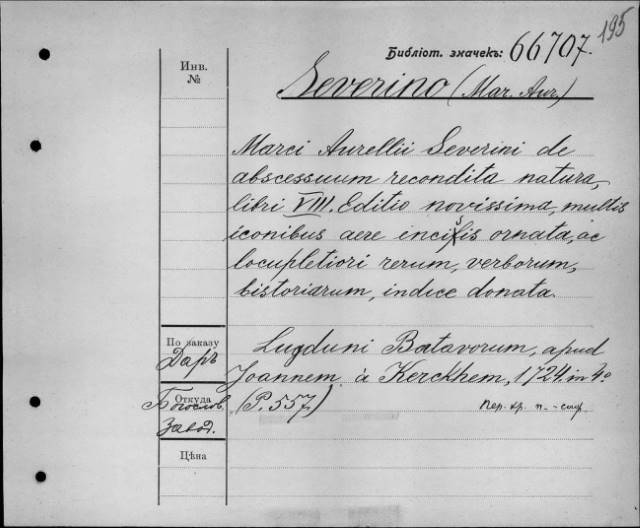 195
Библіот. значекъ: 66707.
Инв.
№
Severino (Mar. Aur.)
Marci Aurellii Severini de
abscessuum recondita natura,
libri VIII. Editio novissima, multis
iconibus aere incisis ornata, ac
locupletiori rerum, verborum,
historiarum, indice donata.
По заказу
Даръ
Lugduni Batavorum, apud
Joannem à Kerckhem, 1724. in 4º
Откуда
Богослов.
Завод.
(P. 557.)
Пер. др. п. -
Цѣна